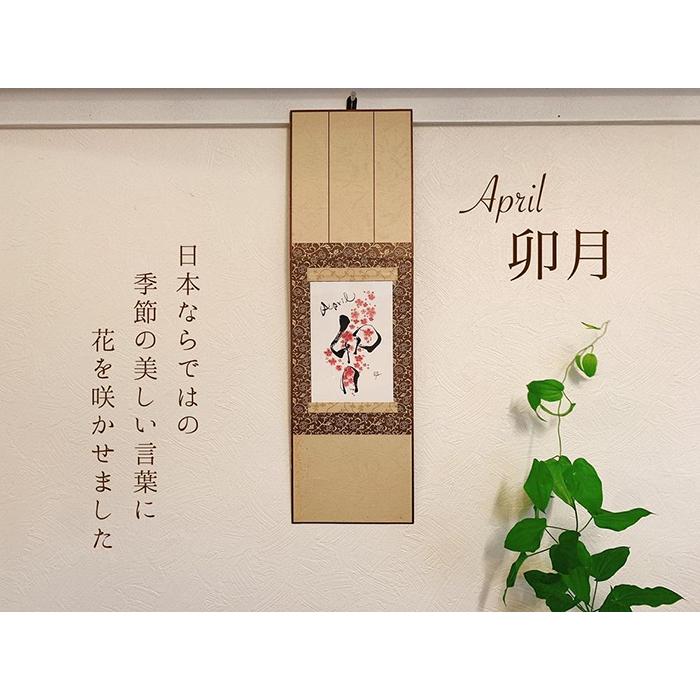 日本ならではの
季節の美しい言葉に
花を咲かせました
April
卯月
April
卯月